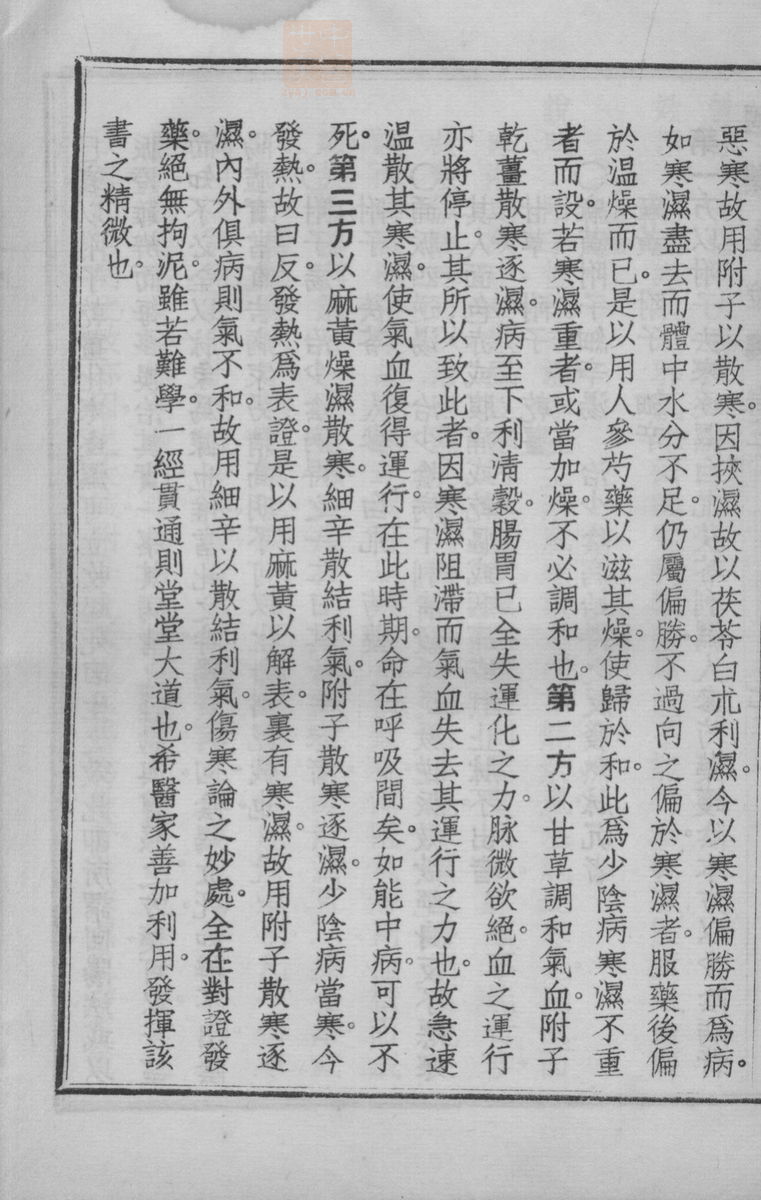 惡寒故用附子以散寒。因挾濕故以茯苓白朮利濕。今以寒濕偏勝而爲病。
如寒濕盡去而體中水分不足。仍屬偏勝。不過向之偏於寒濕者。服藥後偏
於温燥而已。是以用人參芍藥以滋其燥。使歸於和。此爲少陰病寒濕不重
者而設。若寒濕重者。或當加燥。不必調和也。第二方以甘草調和氣血。附子
乾薑散寒逐濕。病至下利清穀。腸胃已全失運化之力。脉微欲絕。血之運行
亦將停止。其所以致此者。因寒濕阻滯而氣血失去其運行之力也。故急速
温散其寒濕。使氣血復得運行。在此時期。命在呼吸間矣。如能中病。可以不
死。第三方以麻黃燥濕散寒。細辛散結利氣。附子散寒逐濕。少陰病當寒。今
發熱。故曰反。發熱爲表證。是以用麻黃以解表。裏有寒濕。故用附子散寒逐
濕。內外俱病則氣不和。故用細辛以散結利氣。傷寒論之妙處。全在對證發
藥。絕無拘泥。雖若難學。一經貫通則堂堂大道也。希醫家善加利用。發揮該
書之精微也。